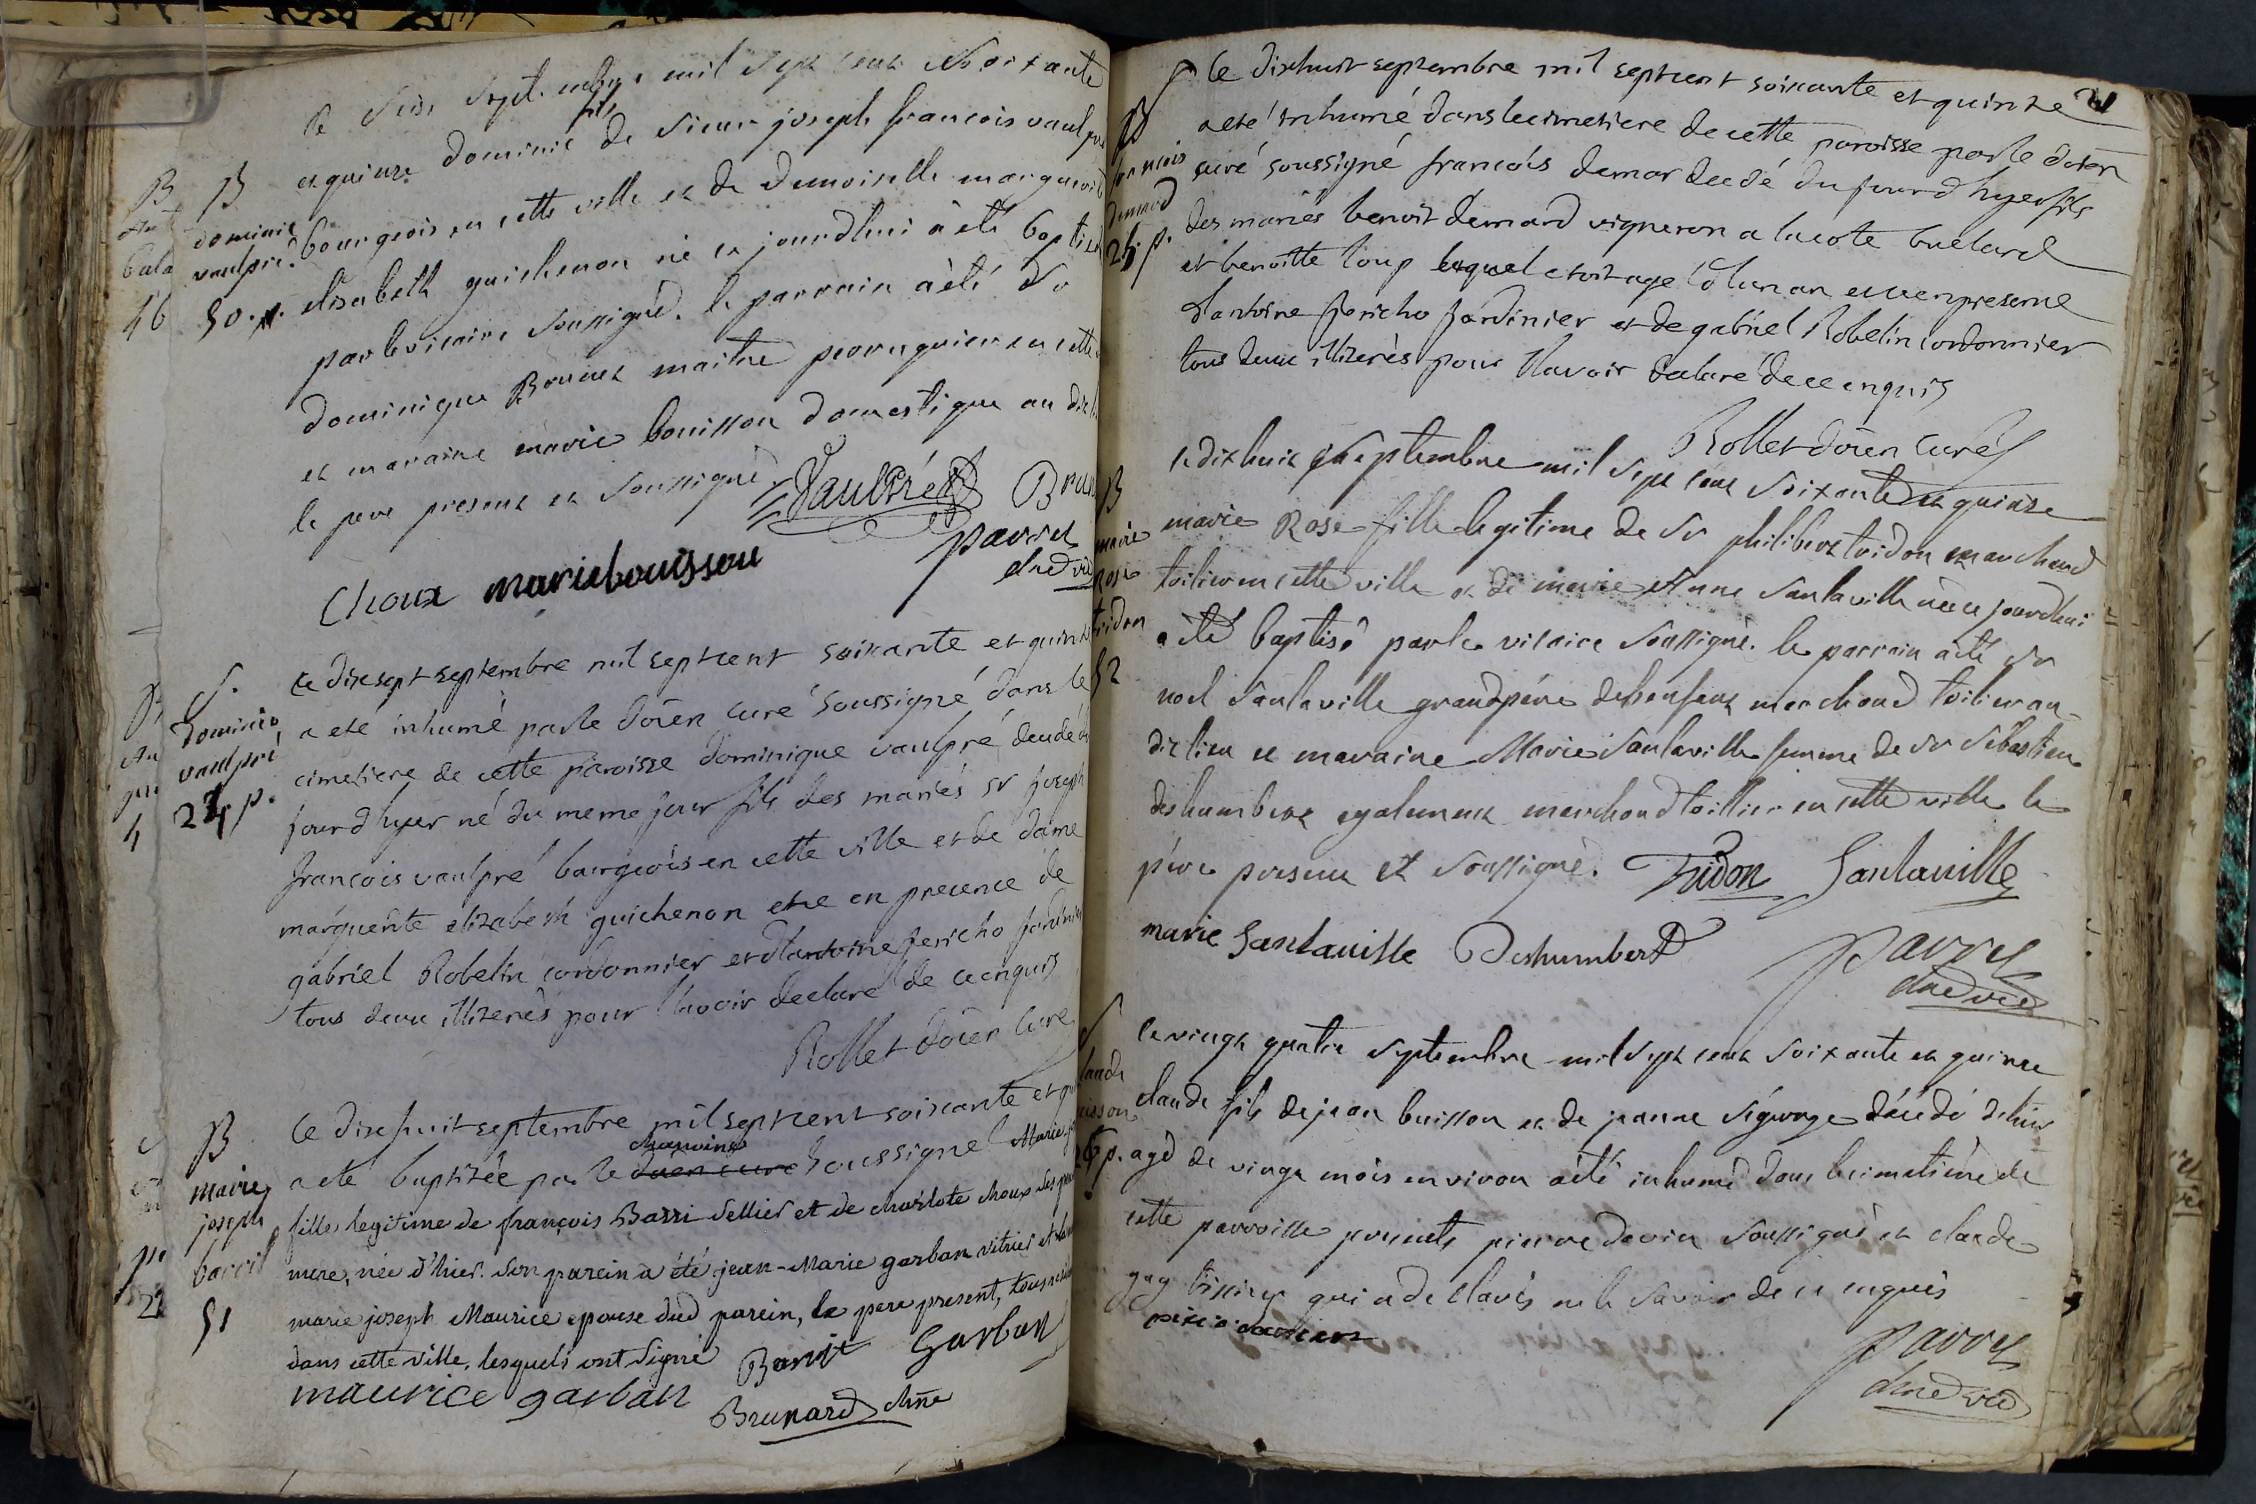 le seize septembre mil sept cent soixante
et quinze dominic fils de sieur joseph francois vaulpré
bourgeois en cette ville et de demoiselle marguerite
elisabeth guichenon né ce jourdhui à été baptisé
par le vicaire soussigné. le parrain à été Sr
dominique maitre peruquier en cette
et maraine marie bouisson domestique au dit
le pere present et soussigné
Vaulpré Brun
Choux marie bouissou parret
chne vic
B
dominic
vaulpré
50. p.
ce dixsept septembre mil septcent soixante et quinze
a eté inhumé par le doïen curé soussigné dans le
cimetiere de cette paroisse dominique vaulpré decedé du
jour d hyer né du meme jour fils des mariés sr joseph
francois vaulpré bourgeois en cette ville et de dame
marguerite elizabeth guichenon et ce en presence de
gabriel Robelin cordonnier et d'antoine Jericho jardinier
tous deux illiterés pour l'avoir declaré de ce enquis
Rollet doïen curé
S.
dominic
vaulpré
24 p.
Ce dixhuit septembre mil septcent soixante et
a été baptizée par le chanoine doien curé soussigné Marie
fille legitime de françois Barri sellier et de charlote choux ses pere
mere, née d'hier. son parein a été jean-Marie garban vitrier et
marie joseph Maurice epouse dud parein, le pere present, tous
dans cette ville, lesquels ont signé Barrit Garban
maurice garban Brunard chne
B
marie
joseph
barril
51
21
Le dixhuit septembre mil septcent soixante et quinze
a eté inhumé dans le cimetiere de cette paroisse par le doïen
curé soussigné francois demar decedé du jour d hyer fils
des mariés benoit demard vigneron a la cote
et benoitte loup lequel etoit agé d'un an et ce en presence
d'antoine Jericho Jardinier et de gabriel Robelin cordonnier
tous deux illiterés pour l'avoir declaré de ce enquis
Rollet doïen curé
S
francois
demard
25. p.
le dixhuit septembre mil sept cent soixante et quinze
marie Rose fille legitime de Sr philibert tridon marchand
toilier en cette ville et de marie anne santaville née ce jourdhui
a été baptisé par le vicaire soussigné. le parrain à été Sr
noel santaville grandpère de l'enfant marchand toilier au
dit lieu et maraine Marie santaville femme de Sr sébastien
deshumbert egalement marchand toillier en cette ville le
père present et soussigné. Tridon Santaville
marie Santaville Deshumbert parret
chne vic
B
marie
Rose
tridon
52
le vingt quatre septembre mil sept cent soixante et quinze
claude fils de jean buisson et de jeanne décédé d'hier
agé de vingt mois environ à été inhumé dans le cimetière de
cette parroisse presents pierre devin soussigné et claude
gay qui a declaré ne le savoir de ce enquis
parret
chne vic
S
claude
buisson
26 p.